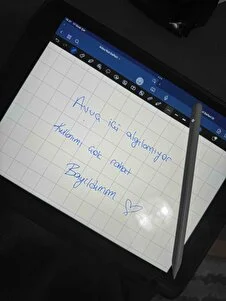 Avuç içi algılamıyor
Kullanımı çok rahat
Bayıldımmm